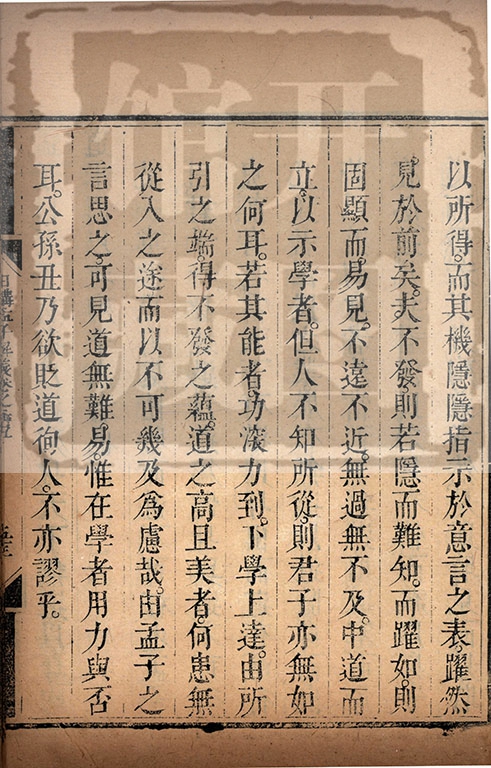 以所得。而其機隱隱指示於意言之表。躍然
見於前矣。夫不發。則若隱而難知。而躍如。則
固顯而易見。不遠不近。無過無不及。中道而
立。以示學者。但人不知所從。則君子亦無如
之何耳。若其能者。功深力到。下學上達。由所
引之端。得不發之蘊。道之高且美者。何患無
從入之途。而以不可幾及為慮哉。由孟子之
言思之。可見道無難易。惟在學者用力與否
耳。公孫丑乃欲貶道徇人。不亦謬乎。